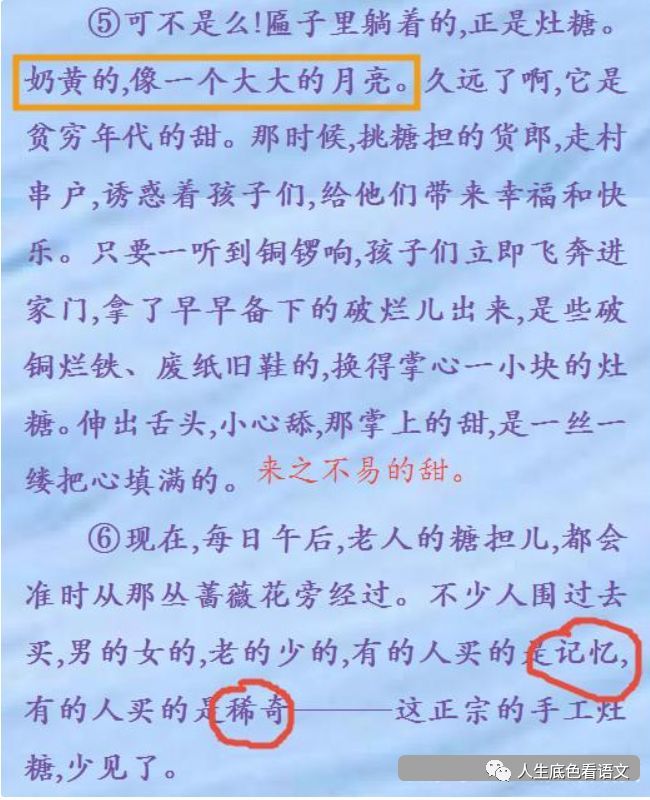 ⑤可不是么!匾子里躺着的,正是灶糖。
奶黄的,像一个大大的月亮。久远了啊,它是
贫穷年代的甜。那时候,挑糖担的货郎,走村
串户,诱惑着孩子们,给他们带来幸福和快
乐。只要一听到铜锣响,孩子们立即飞奔进
家门,拿了早早备下的破烂儿出来,是些破
铜烂铁、废纸旧鞋的,换得掌心一小块的灶
糖。伸出舌头,小心舔,那掌上的甜,是一丝一
缕把心填满的。
来之不易的甜。
⑥现在,每日午后,老人的糖担儿,都会
准时从那丛蔷薇花旁经过。不少人围过去
买,男的女的,老的少的,有的人买的是记忆,
有的人买的是稀奇————这正宗的手工灶
糖,少见了。
人生底色看语文